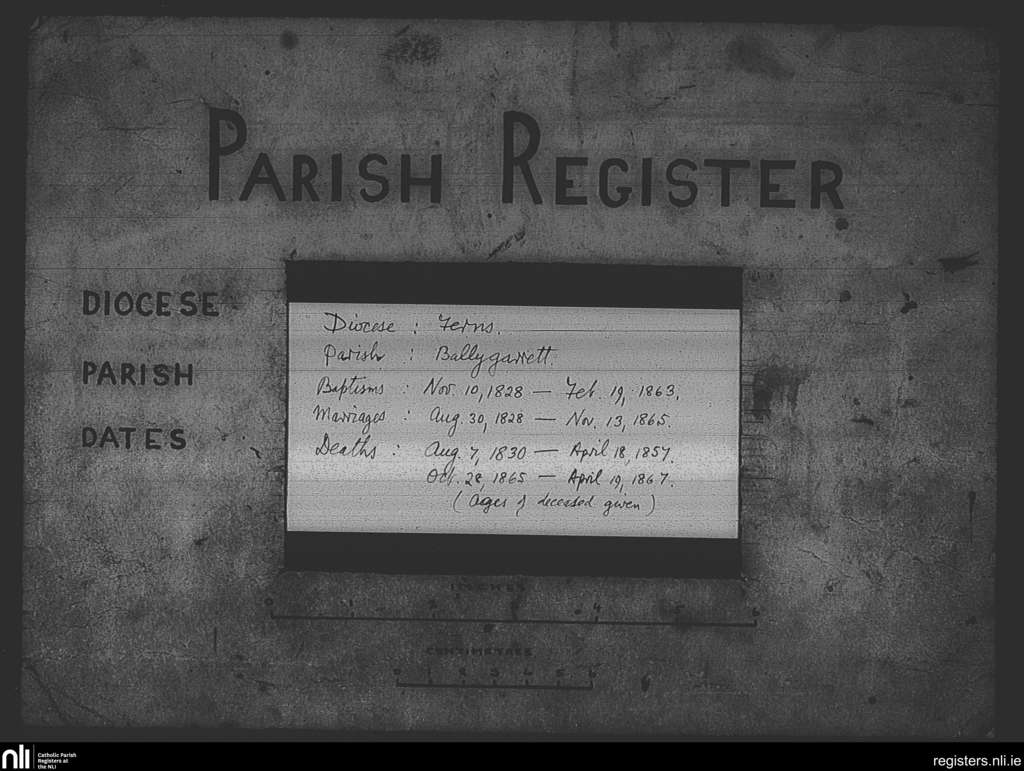 PARISH REGISTER
DIOCESE
PARISH
DATES
Diocese : Ferns.
Parish : Ballygarrett.
Baptisms : Nov. 10, 1828 — Feb. 19, 1863.
Marriages : Aug. 30, 1828 — Nov. 13, 1865.
Deaths : Aug. 7, 1830 — April 18, 1857.
Oct. 28, 1865 — April 19, 1867.
(Ages of deceased given)
INCHES
0 1 2 3 4 5 6
CENTIMETRES
0 1 2 3 4 5 6
nli
Catholic Parish
Registers at
the NLI
registers.nli.ie